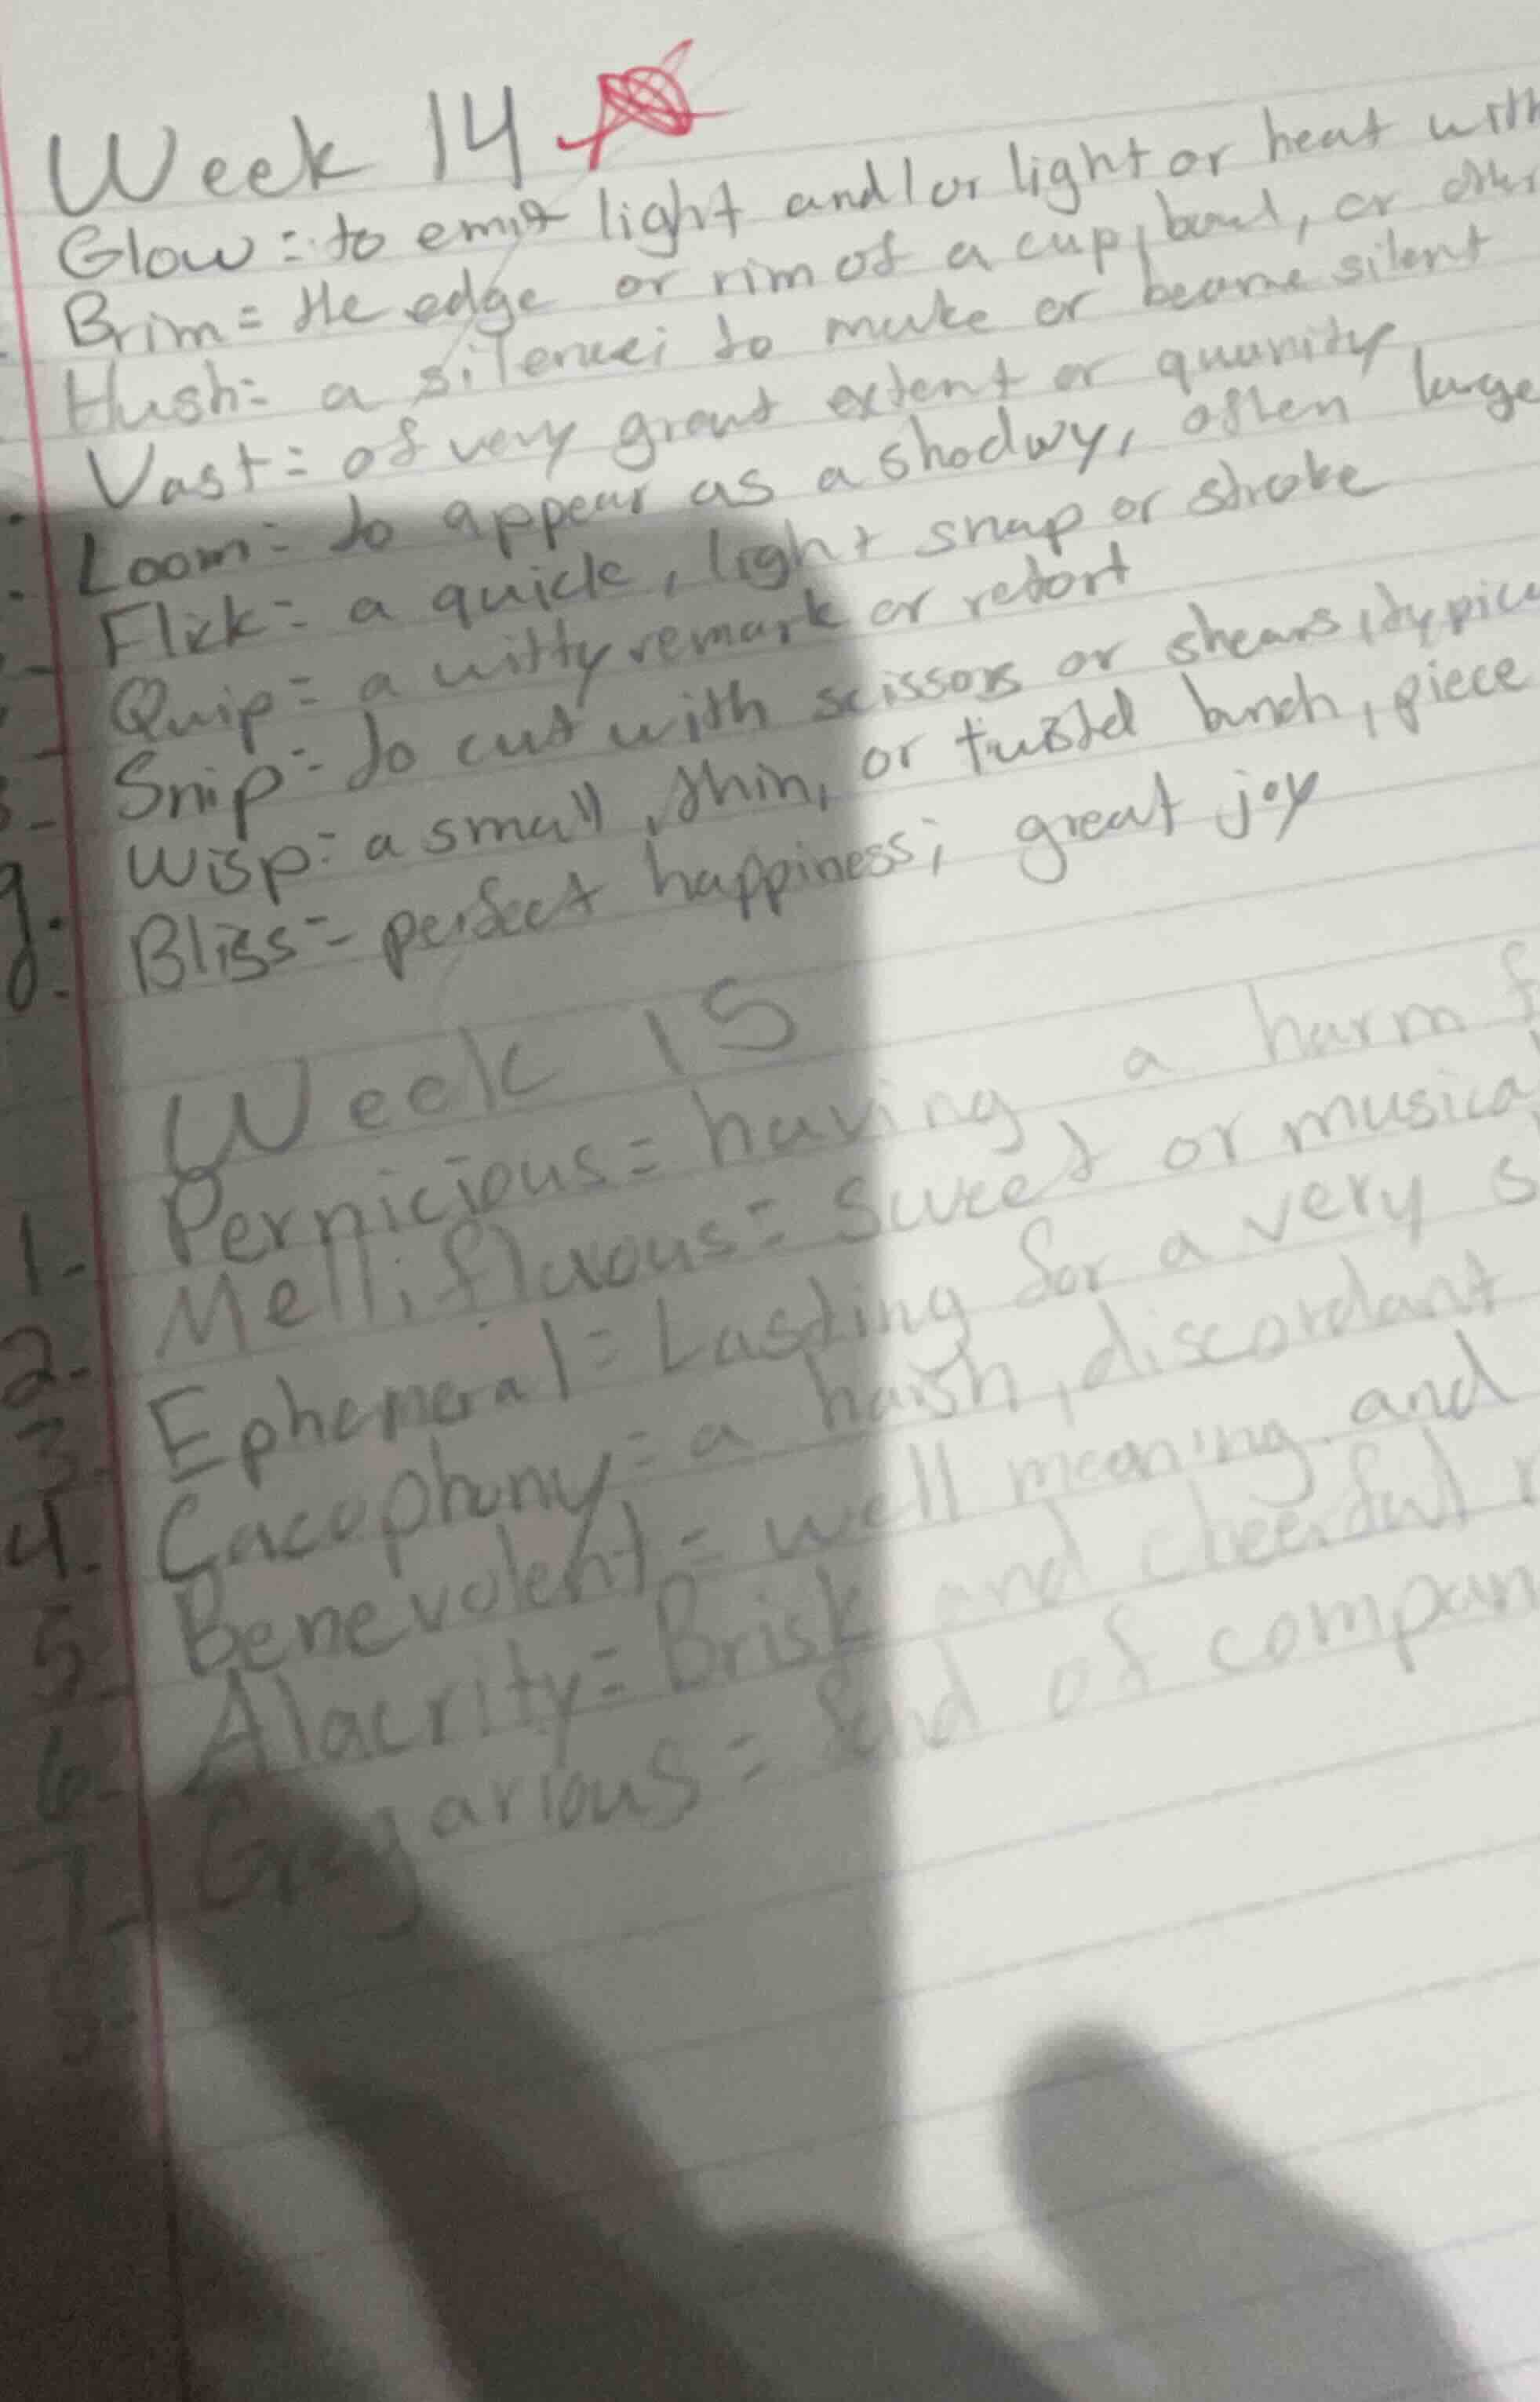 Week 14
Glow = to emit light and/or light or heat with
Brim = the edge or rim of a cup, bowl, or other
Hush = a silence; to make or become silent
Vast = of very great extent or quanity
Loom = to appear as a shodwy, often large
Flick = a quick, light snap or stroke
Quip = a witty remark or retort
Snip = to cut with scissors or shears, typic
9. Wisp = a small, thin, or twisted bunch, piece
0. Bliss = perfect happiness; great joy
Week 15
1. Pernicious = having a harmf
2. Mellifluous = Sweet or musica
3. Ephemeral = Lasting for a very s
4. Cacophony = a harsh, discordant
5. Benevolent = well meaning and
6. Alacrity = Brisk and cheerful r
7. Gregarious = fond of compan